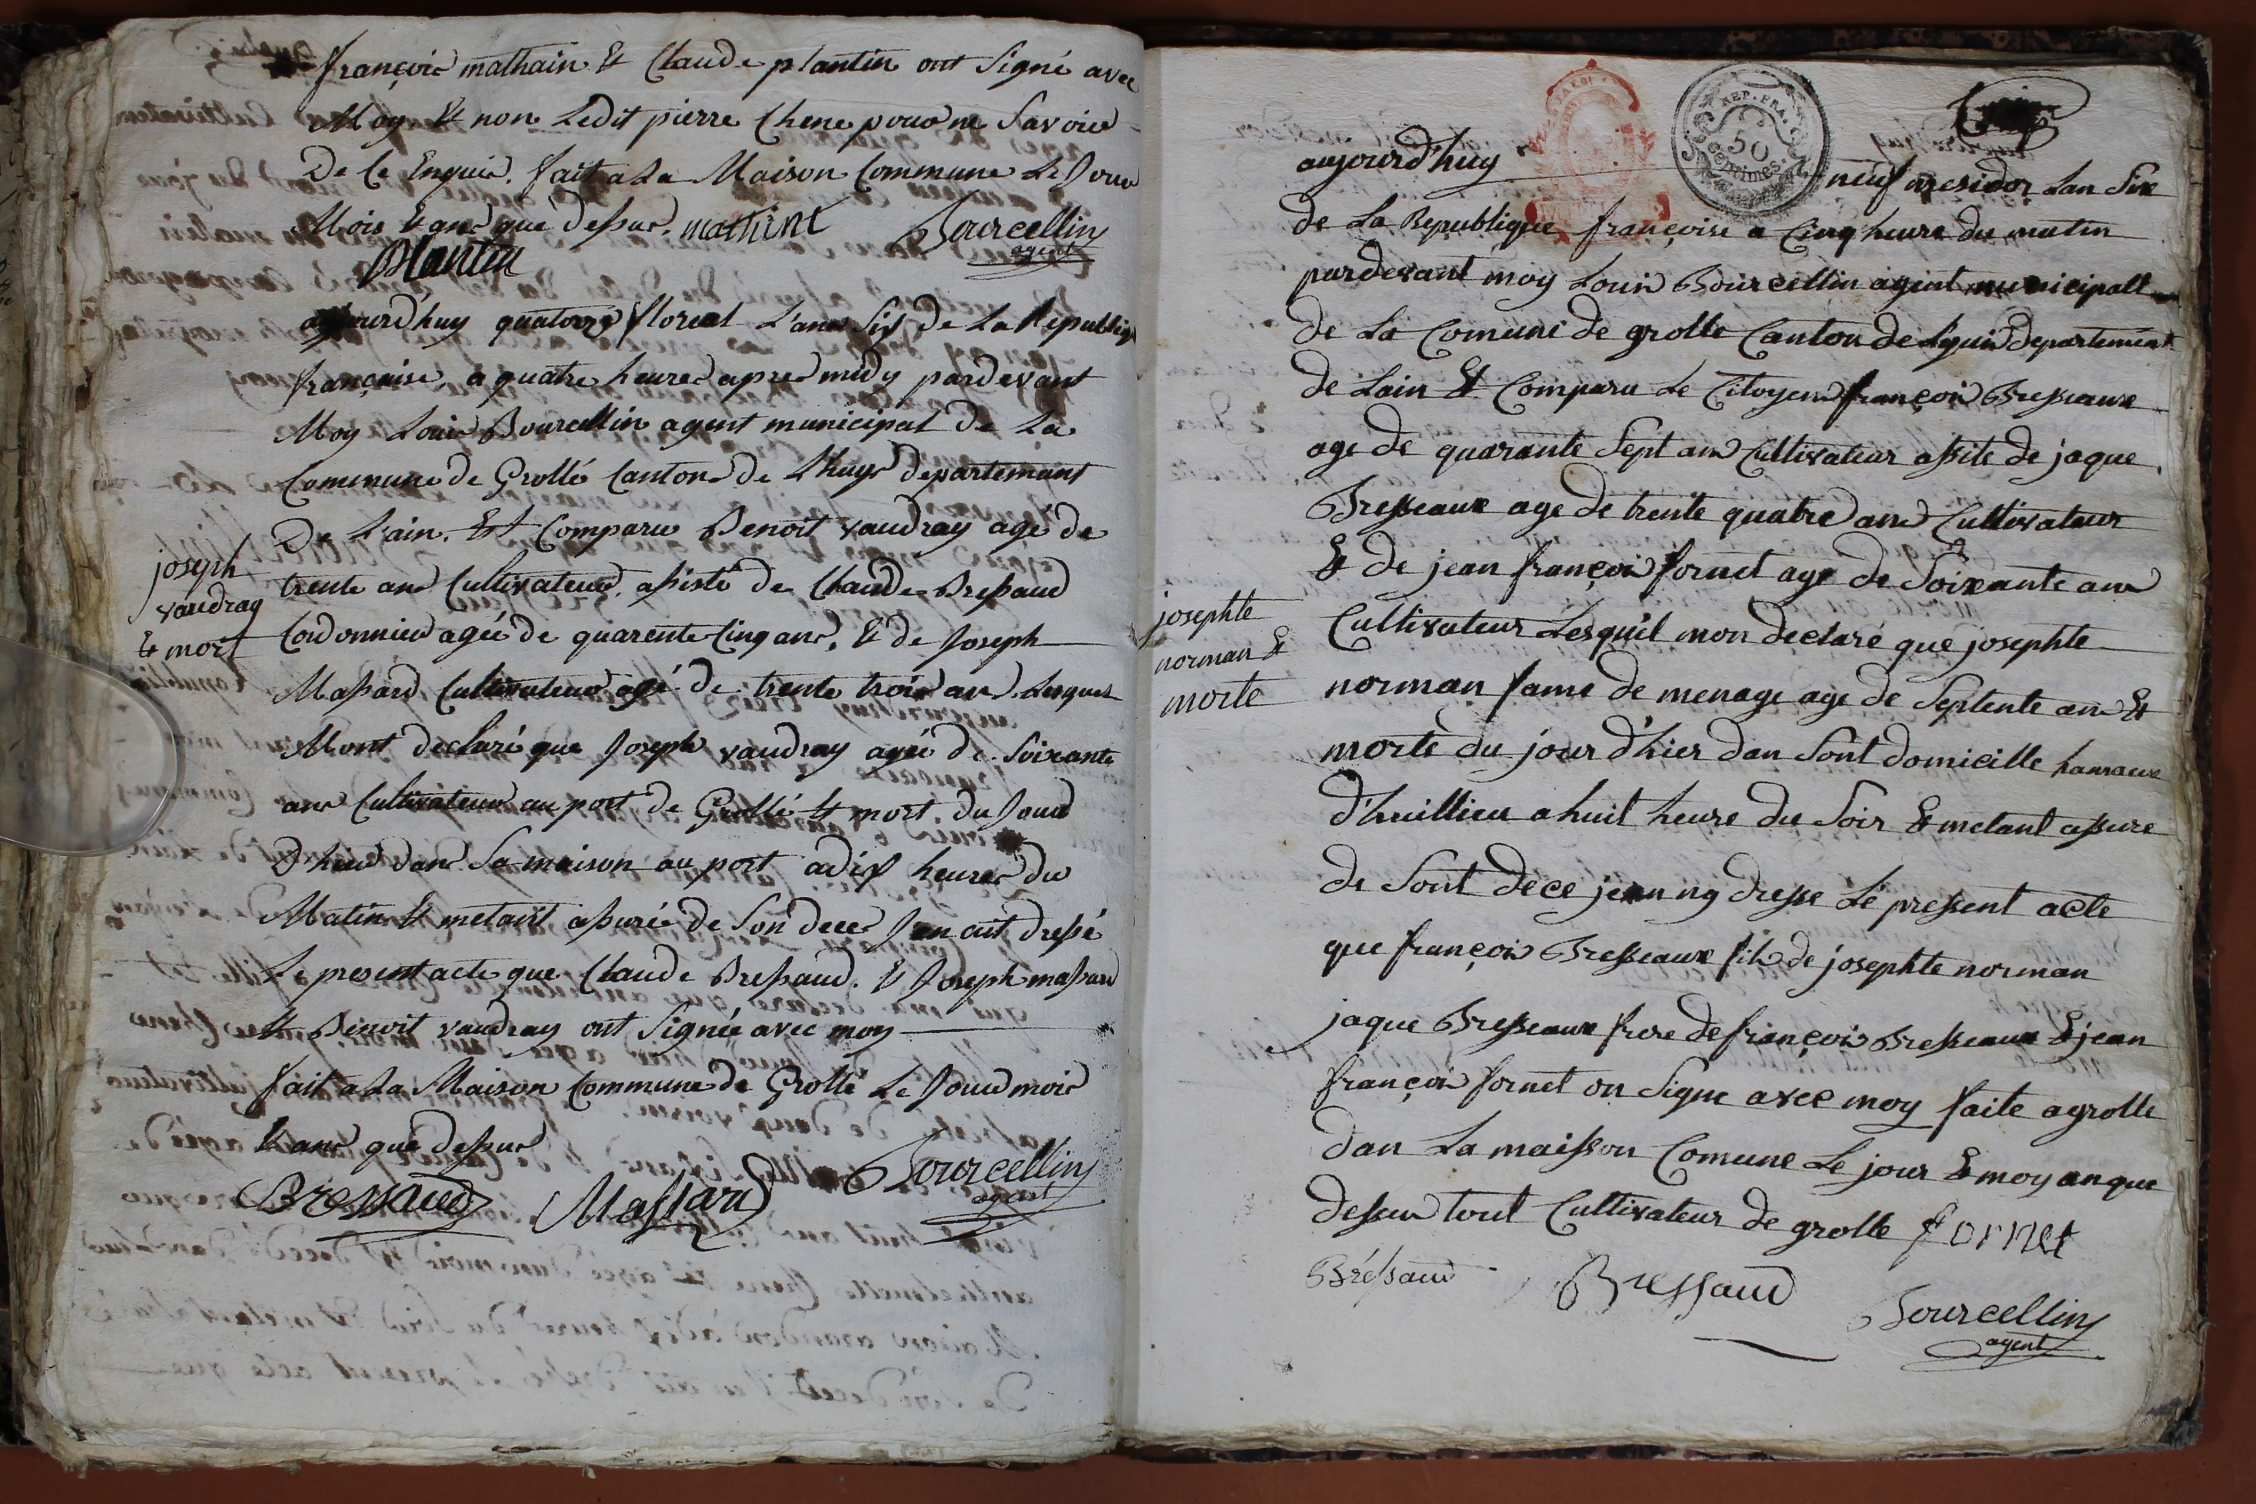 françois mathain & Claude plantin ont Signé avec
Moy & non Ledit pierre Chene pour ne Savoire
De Ce Enquis. fait a La Maison Commune Le Jour
Mois & ans que dessus. mathint Bourcellin
plantin agent
aujourd'huy quatorze floreal L'ans Six de La Republique
française, a quatre heures apres midy pardevant
Moy Louis Bourcellin agent municipal de La
Commune de Grollé Canton de Lhuys departemant
De L'ain. Et Comparu Benoit vaudray age de
joseph
vaudray
& mort
trente ans Cultivateur, assisté de Claude Bressaud
Cordonnier agée de quarente Cinq ans, & de Joseph
Massard Cultivateur agé de trente trois ans Lesquels
Mont declaré que Joseph vaudray agée de Soixante
ans Cultivateur au port de Grollé & mort Du Jour
D'hier dans Sa maison au port a dix heures du
Matin & metant assuré de Son deces J'en ait dressé
Le present acte que Claude Bressaud. & Joseph massard
& Benoit vaudray ont Signée avec moy
fait a La Maison Commune de Grollé Le Jour mois
& ans que dessus
Bressaud Massard Bourcellin
agent
REP. FRA.
50
centimes.
aujourd'huy neuf mesidor Lan Six
de La Republique françoise a Cinq heure du matin
pardevant moy Louis Bourcellin agent municipall
de La Comune de grolle Canton de Lhuis departement
de Lain Et Comparu Le Citoyen françois Bresseaux
age de quarante Sept ans Cultivateur assite de jaque
Bresseaux age de trente quatre ans Cultivateur
& de jean françois fornet age de Soixante ans
josephte
norman &
morte
Cultivateur Lesquil mon declaré que josephte
norman fame de menage age de Septente ans Et
morte du jour d'hier dan Sont domicille hamaux
d'huillieu a huit heure du Soir & metant assure
de Sont dece jean ny dresse Le pressent acte
que françois Bresseaux fils de josephte norman
jaque Bresseaux frere de françois Bresseaux & jean
françois fornet on Signe avec moy faite a grolle
dan La maisson Comune Le jour & moy an que
dessus tout Cultivateur de grolle fornet
Bréssaud Bressaud
Bourcellin
agent